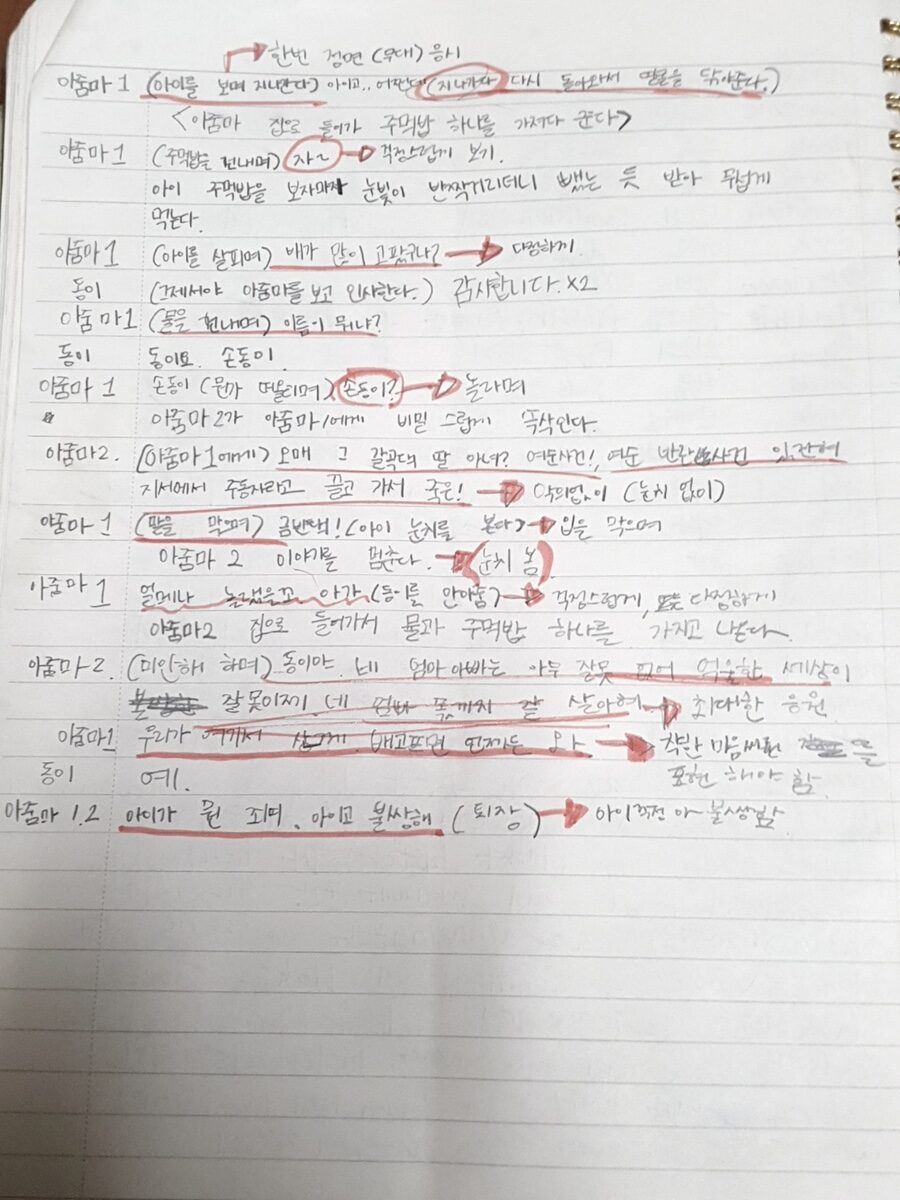 한번 정면 (무대) 응시
아줌마 1 (아이를 보며 지나간다) 아이고.. 어쩐대 (지나가다 다시 돌아와서 얼굴을 닦아준다.)
<아줌마 집으로 들어가 주먹밥 하나를 가져다 준다>
아줌마 1 (주먹밥을 건내며) 자~ 걱정스럽게 보기.
아이 주먹밥을 보자마자 눈빛이 반짝거리더니 뺐는 듯 받아 무섭게
먹는다.
아줌마 1 (아이를 살피며) 배가 많이 고팠구나? 다정하게
동이 (그제서야 아줌마를 보고 인사한다.) 감사합니다.X2
아줌마1 (물을 건내며) 이름이 뭐냐?
동이 동이요. 손동이
아줌마 1 손동이 (뭔가 떠올리며) 손동이? 놀라며
아줌마2가 아줌마1에게 비밀 스럽게 속삭인다.
아줌마2. (아줌마1에게) 오매 그 갈꼭대 딸 아녀? 여순사건!, 여순 반란 사건 있잔혀
지서에서 주동자라고 끌고 가서 죽은! 악의없이 (눈치 없이)
아줌마 1 (말을 막으며) 금반댁! (아이 눈치를 본다) 입을 막으며
아줌마 2 이야기를 멈춘다. (눈치 봄)
아줌마 1 얼메나 놀랬을꼬. 아가 (동이를 안아줌) 걱정스럽게, 다정하게
아줌마2 집으로 들어가서 물과 주먹밥 하나를 가지고 나온다.
아줌마2. (미안해 하며) 동이야. 네 엄마아빠는 아무 잘못 없어 억울한 세상이
잘못이지. 네 몫까지 잘 살아혀 최대한 응원
아줌마1 우리가 배고프면 언제든 와 착한 마음씨를
표현 해야 함
동이 예.
아줌마 1.2 아이가 뭔 죄며. 아이고 불쌍해 (퇴장) 아이걱정